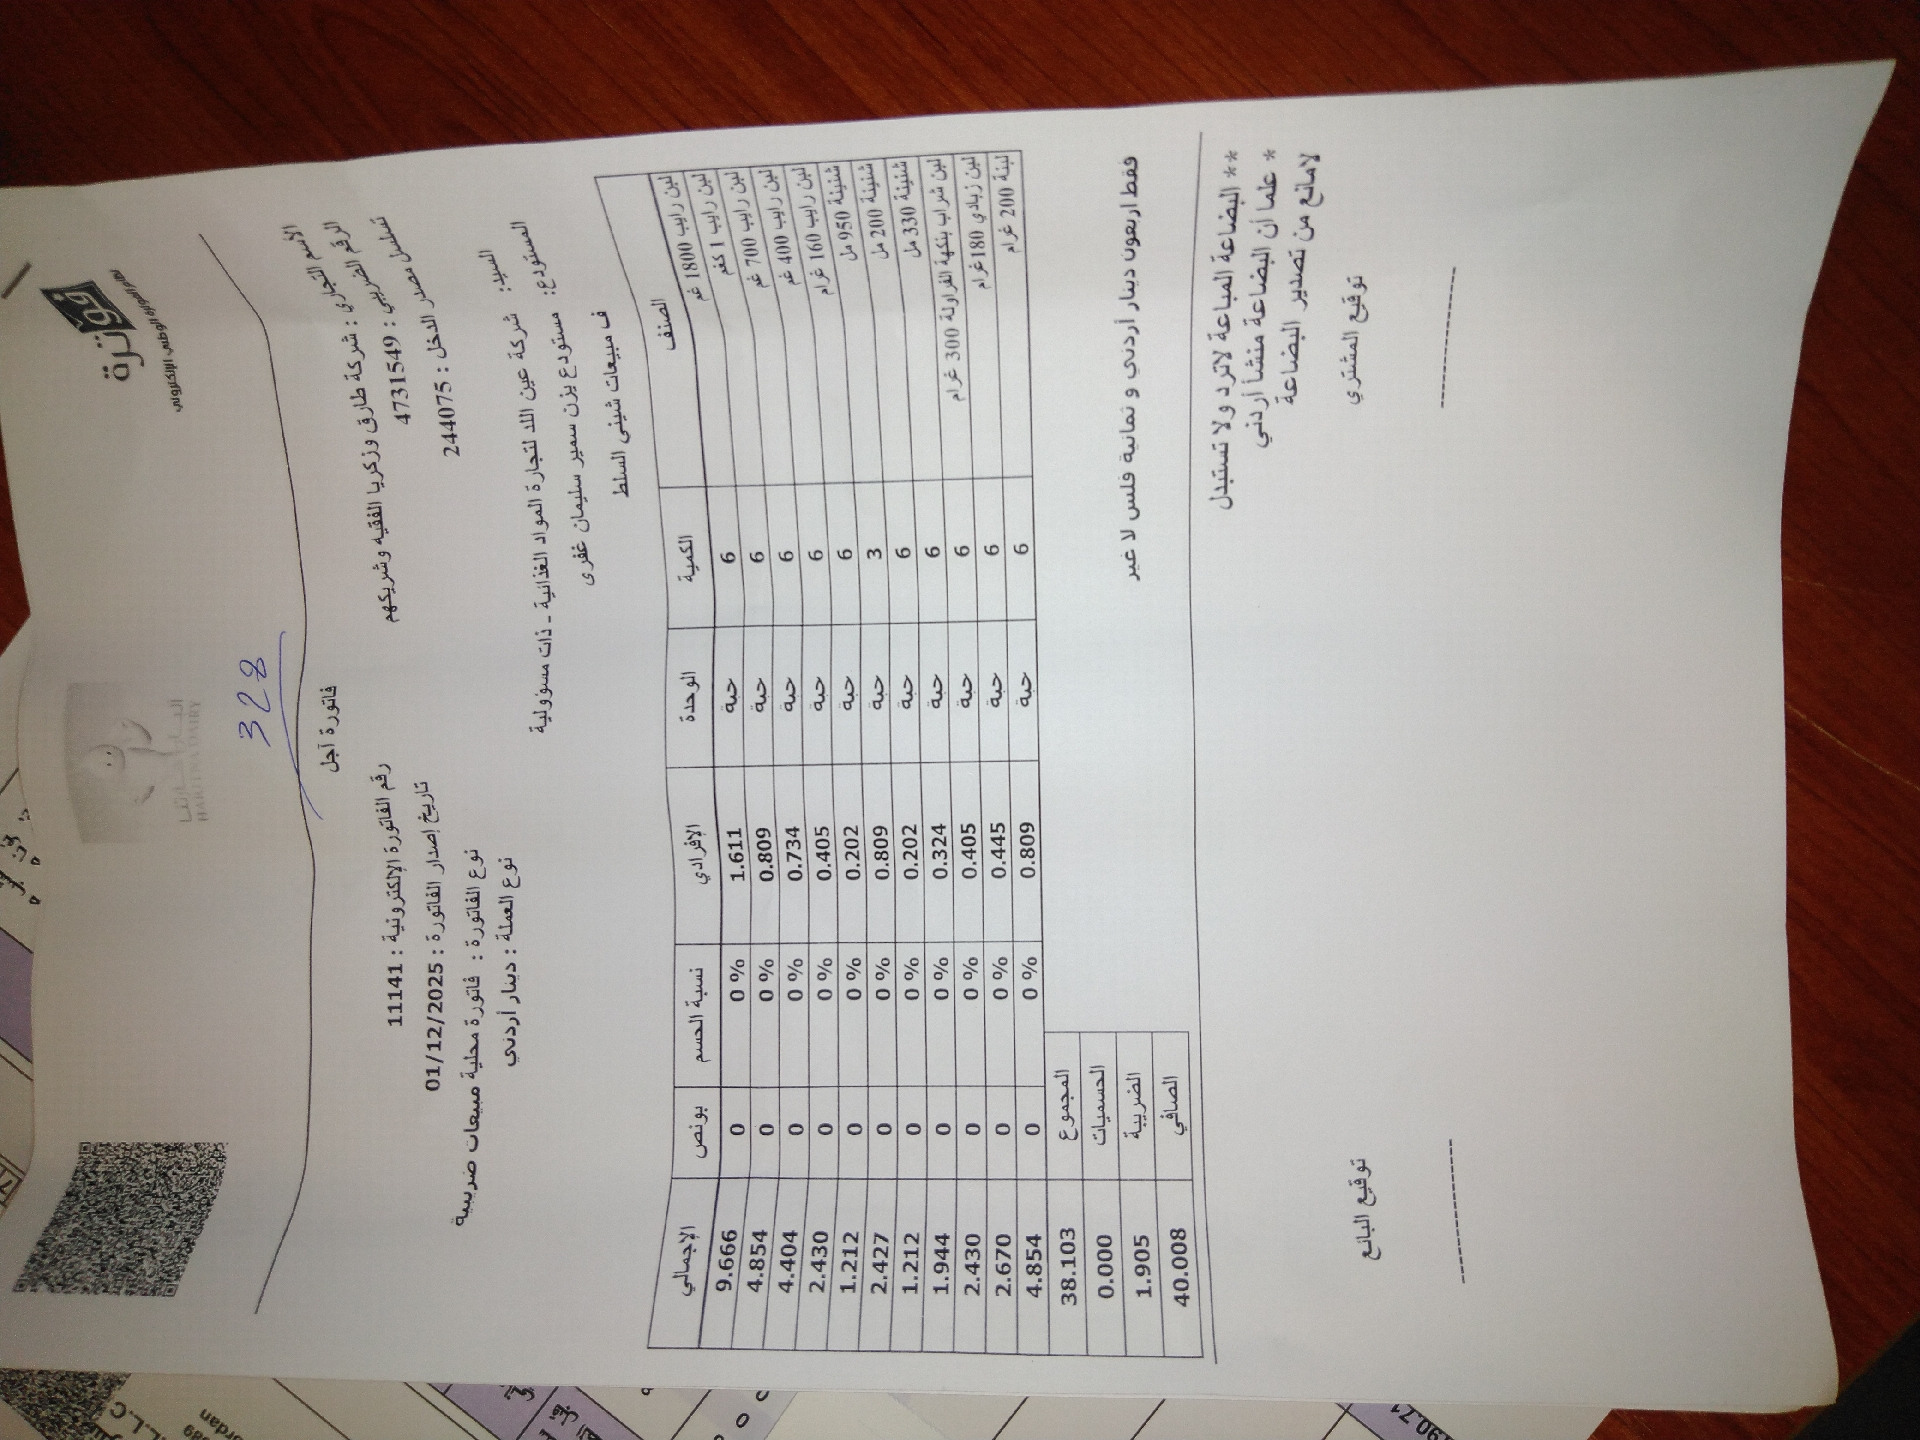 فوترة
نظام الفوترة الوطني الإلكتروني
HARTHNA DAIRY
328
فاتورة آجل
الأسم التجاري : شركة طارق وزكريا الفقيه وشريكهم
الرقم الضريبي : 4731549
تسلسل مصدر الدخل : 244075
رقم الفاتورة الإلكترونية : 11141
تاريخ إصدار الفاتورة : 01/12/2025
نوع الفاتورة : فاتورة محلية مبيعات ضريبية
نوع العملة : دينار أردني
السيد: شركة عين اللد لتجارة المواد الغذائية - ذات مسؤولية
المستودع: مستودع يزن سمير سليمان غفرى
ف مبيعات شيني السلط
الصنف الكمية الوحدة الإفرادي نسبة الحسم بونص الإجمالي
لبن رايب 1800 غم 6 حبة 1.611 0 % 0 9.666
لبن رايب 1 كغم 6 حبة 0.809 0 % 0 4.854
لبن رايب 700 غم 6 حبة 0.734 0 % 0 4.404
لبن رايب 400 غم 6 حبة 0.405 0 % 0 2.430
لبن رايب 160 غرام 6 حبة 0.202 0 % 0 1.212
شنينة 950 مل 3 حبة 0.809 0 % 0 2.427
شنينة 200 مل 6 حبة 0.202 0 % 0 1.212
شنينة 330 مل 6 حبة 0.324 0 % 0 1.944
لبن شراب بنكهة الفراولة 300 غرام 6 حبة 0.405 0 % 0 2.430
لبن زبادي 180غرام 6 حبة 0.445 0 % 0 2.670
لبنة 200 غرام 6 حبة 0.809 0 % 0 4.854
المجموع 38.103
الحسميات 0.000
الضريبة 1.905
الصافي 40.008
فقط اربعون دينار أردني و ثمانية فلس لا غير
** البضاعة المباعة لاترد ولا تستبدل
* علما أن البضاعة منشأ أردني
لامانع من تصدير البضاعة
توقيع المشتري توقيع البائع
L.L.C